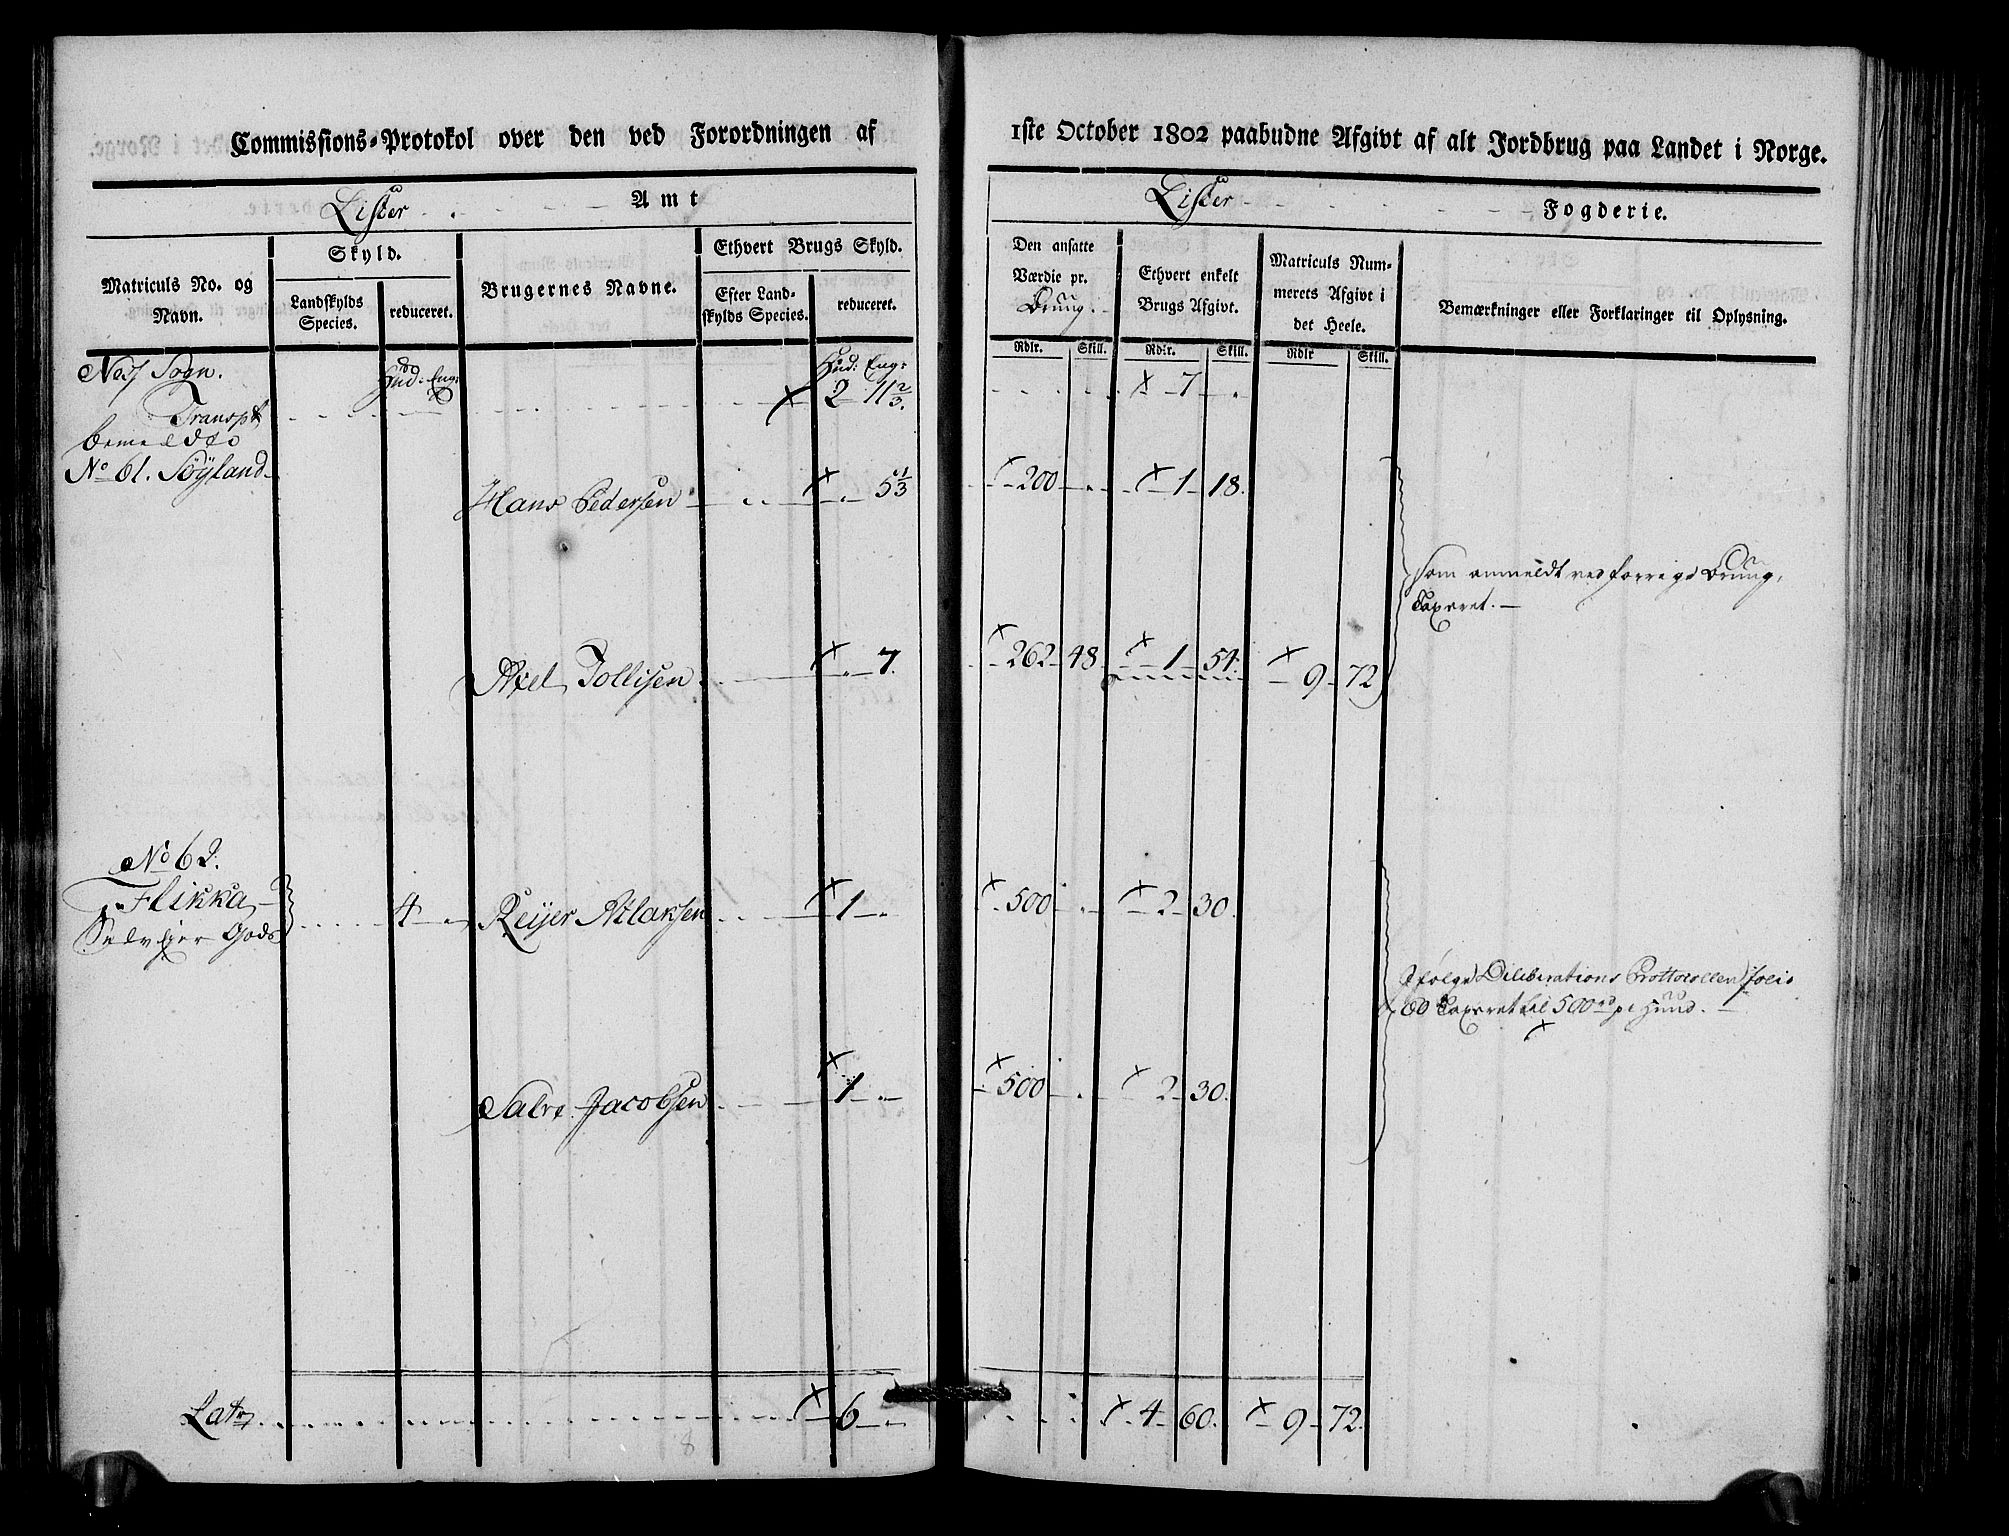 Commissions-Protokol over den ved Forordningen af 1ste October 1802 paabudne Afgivt af alt Jordbrug paa Landet i Norge.
Lister Amt
Lister Fogderie.
Matriculs No. og Navn.
Skyld.
Landskylds Species.
reduceret.
Brugernes Navne.
Ethvert Brugs Skyld.
Efter Landskylds Species.
reduceret.
Den ansatte Værdie pr. Bruug.
Ethvert enkelt Brugs Afgivt.
Matriculs Nummerets Afgivt i det Heele.
Bemærkninger eller Forklaringer til Oplysning.
Rdlr. Skill. Rdlr. Skill. Rdlr Skill.
Sogn. Hud: Eng: Hud: Eng:
Transpt 2 11 2/3. 7
No 61. Söyland
Hans Pedersen 5 1/3 200 1 18.
som anmeldt ved forrige Bruug,
Taxeret.
Axel Tollisen 7. 262 48 1 54. 9 72
No 62.
Flikka
Gods 4 Reijer Atlaksen 1 500 2 30.
Ifølge Deliberations Prottocollen folio
60 Taxeret til 500 rd pr Huud.
Salve Jacobsen 1 500 2 30.
Latr 6 4 60. 9 72.
8